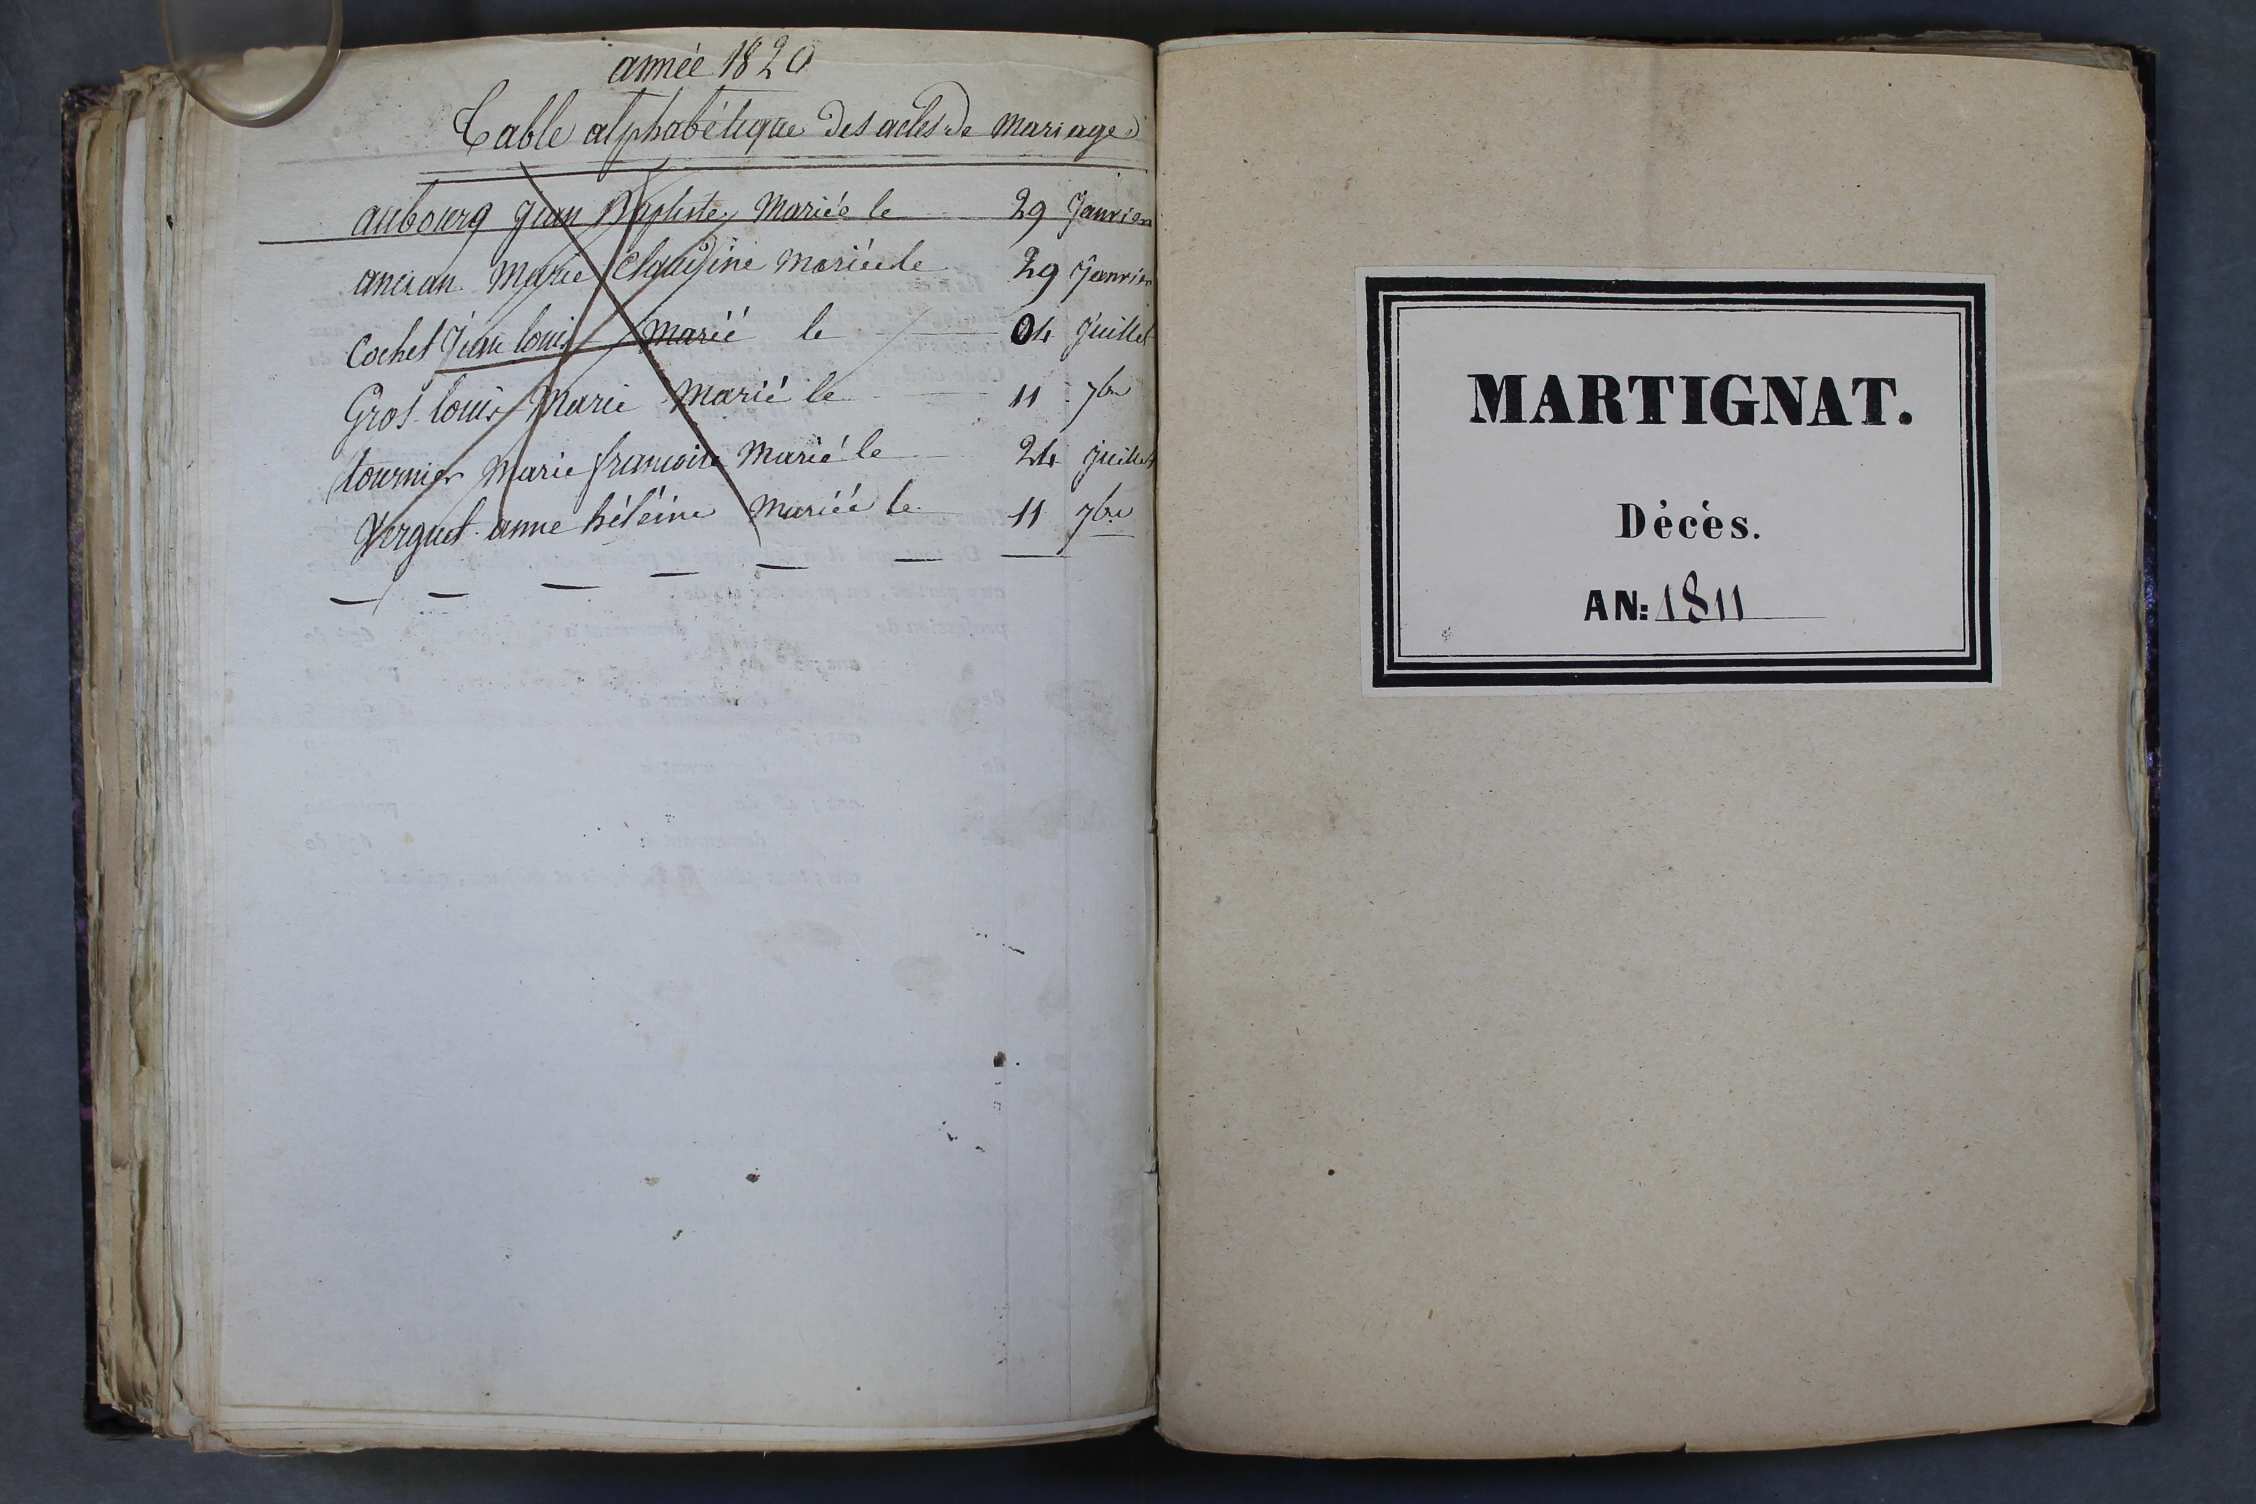 année 1820
Table alphabétique des actes de mariage
aubourg Jean Baptiste Mariée le 29 Janvier
ancian Marie Claudine Mariée le 29 Janvier
Cochet Jean louis Marié le 04 Juillet
Gros louis Marie Marié le 11 7bre
tournier Marie francoise Marié le 24 Juillet
Verguet anne héléine Mariéé le 11 7bre
MARTIGNAT.
Décès.
AN: 1811